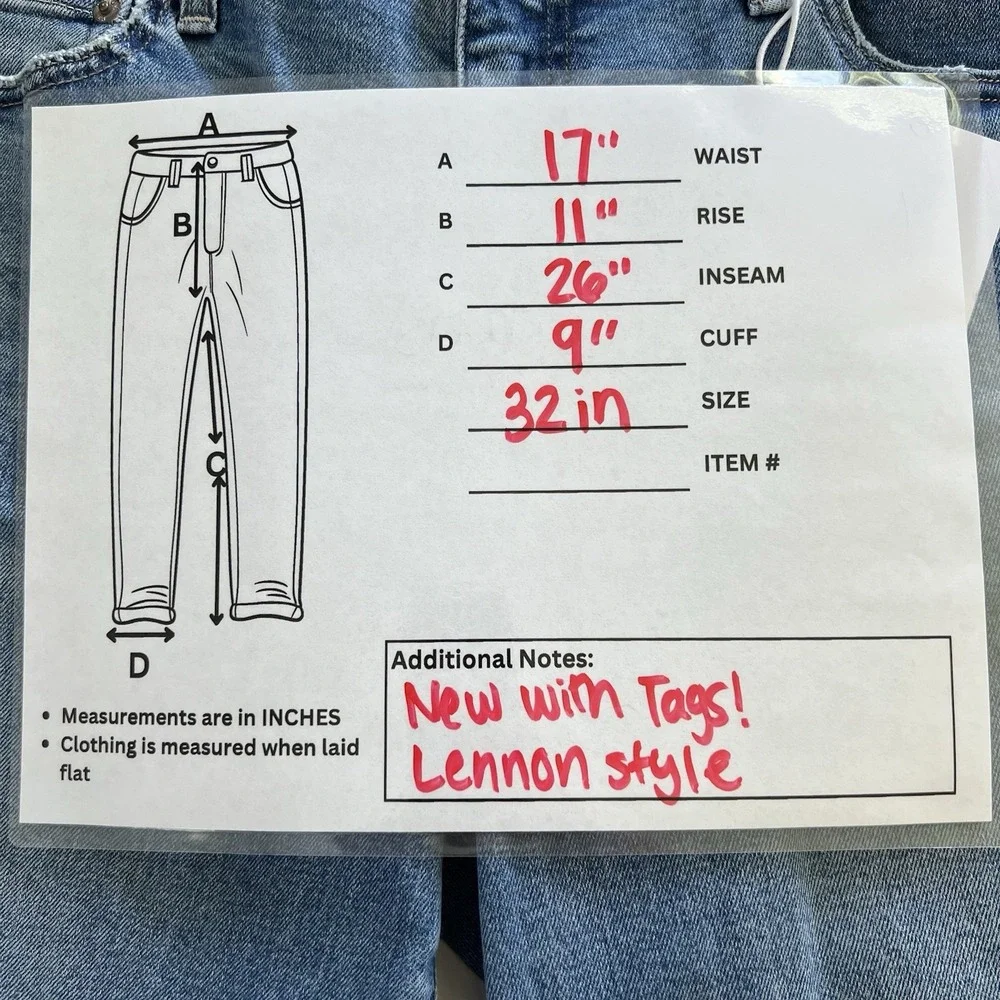 A
B
C
D
A 17" WAIST
B 11" RISE
C 26" INSEAM
D 9" CUFF
32in SIZE
ITEM #
• Measurements are in INCHES
• Clothing is measured when laid
flat
Additional Notes:
New with Tags!
Lennon style